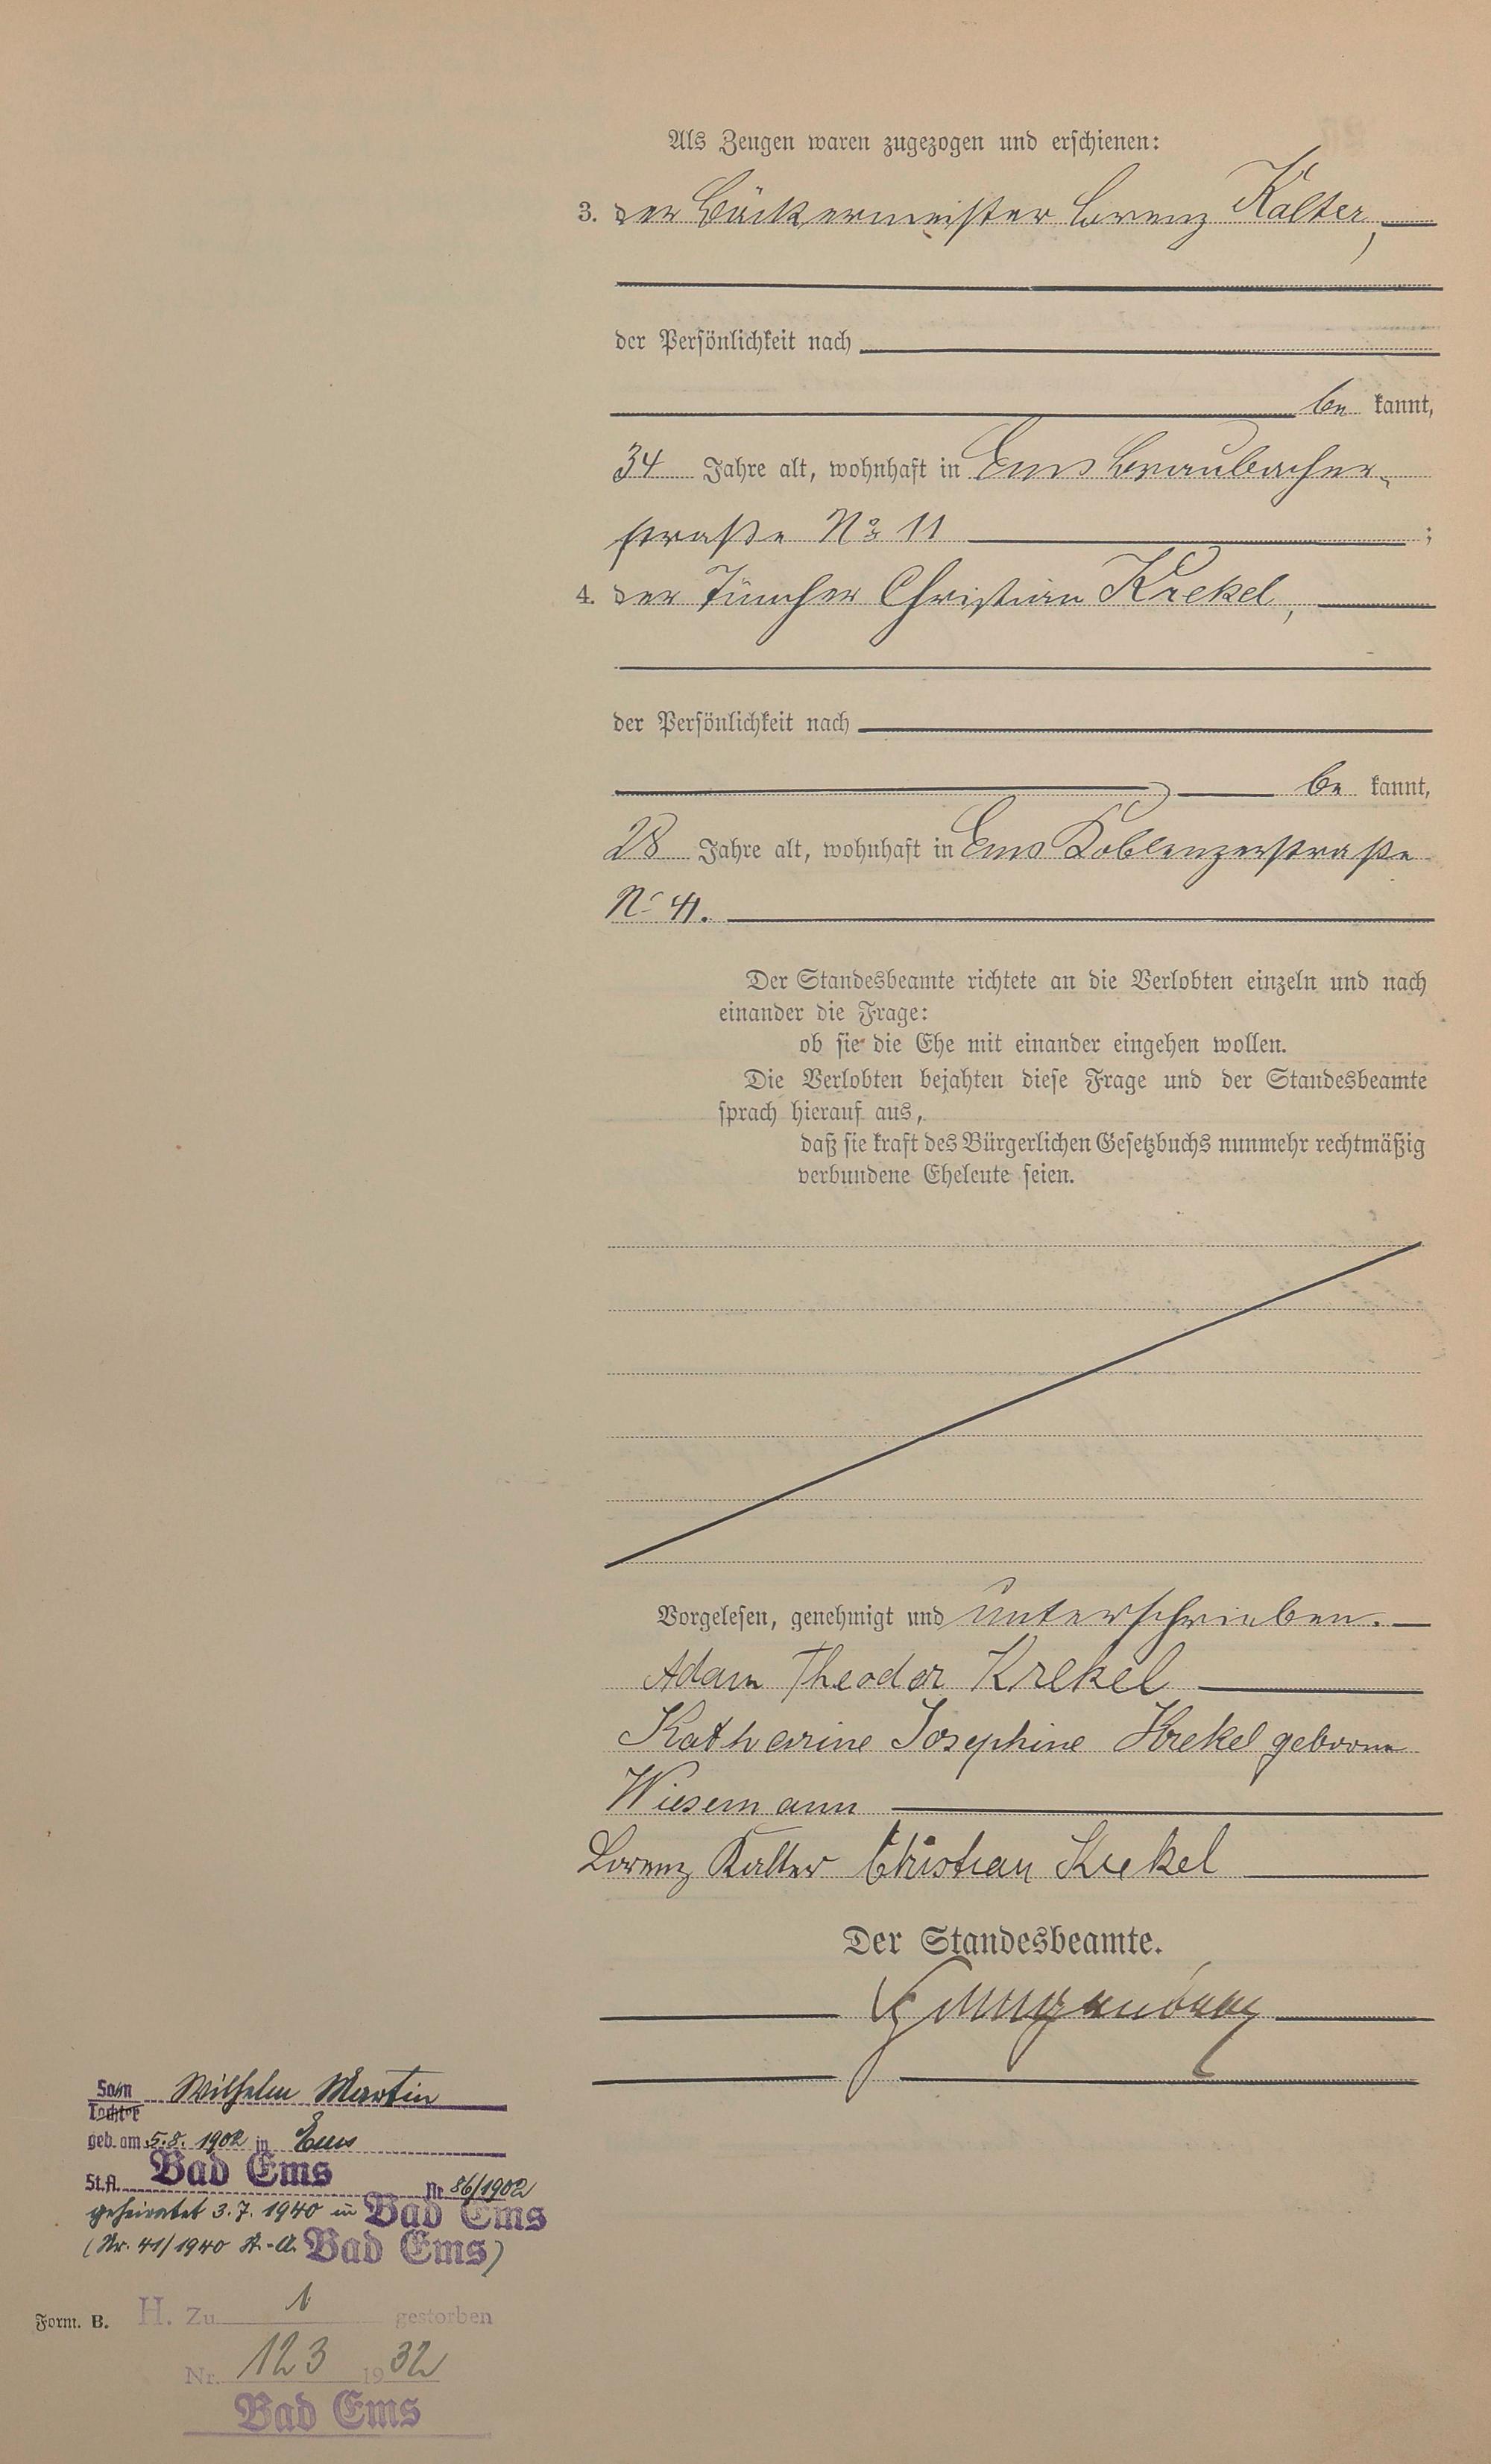 Als Zeugen waren zugezogen und erschienen:
3. der Bäckermeister Lorenz Kalter,
der Persönlichkeit nach
be kannt,
34 Jahre alt, wohnhaft in Ems Braubacher-
straße No 11 ;
4. der Tüncher Christian Krekel,
der Persönlichkeit nach
be kannt,
28 Jahre alt, wohnhaft in Ems Koblenzerstraße
No 41.
Der Standesbeamte richtete an die Verlobten einzeln und nach
einander die Frage:
ob sie die Ehe mit einander eingehen wollen.
Die Verlobten bejahten diese Frage und der Standesbeamte
sprach hierauf aus,
daß sie kraft des Bürgerlichen Gesetzbuchs nunmehr rechtmäßig
verbundene Eheleute seien.
Vorgelesen, genehmigt und unterschrieben.
Adam Theodor Krekel
Katharine Josephine Krekel geborne
Wiesemann
Lorenz Kalter Christian Krekel
Der Standesbeamte.
Sohn Wilhelm Martin
Tochter
geb. am 5.8. 1902 in Ems
St.A. Bad Ems Nr 86/1902
geheiratet 3.7.1940 in Bad Ems
(Nr. 41/1940 St.-A. Bad Ems)
Form. B. H. Zu 1 gestorben
Nr. 123 1932
Bad Ems